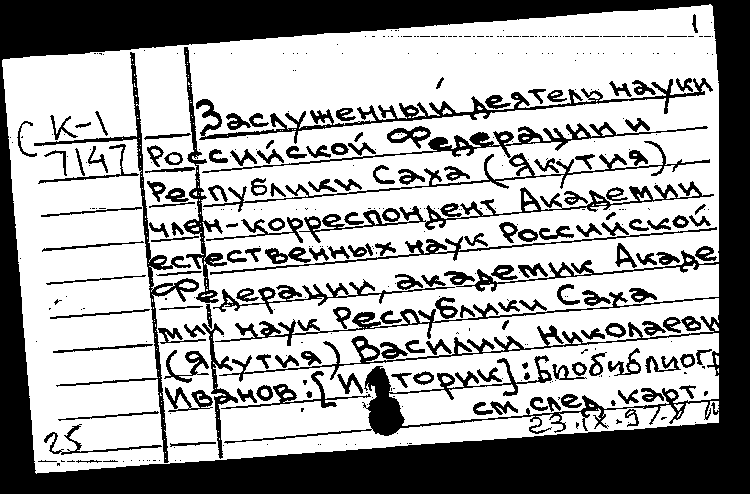 1
Заслуженный деятель науки
С К-1
7147
Российской Федерации и
Республики Саха (Якутия),
член-корреспондент Академии
естественных наук Российской
Федерации, академик Акаде
мии наук Республики Саха
(Якутия) Василий Николаеви
Иванов: [Историк]: Биобиблиогр
см. след. карт.
25